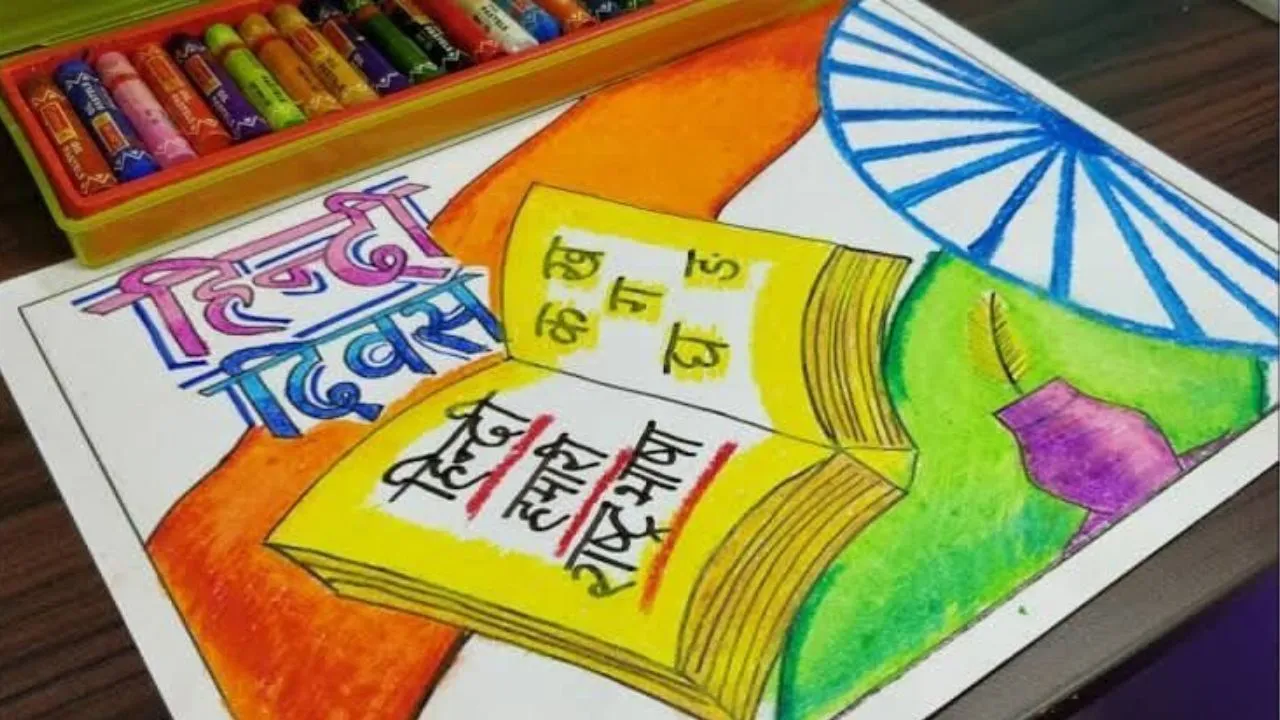 हिन्दी
दिवस
क ख
ग
घ ङ
हिन्दी
हमारी
राष्ट्रभाषा